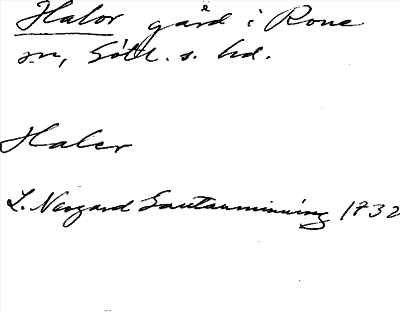 Halor gård i Rone
sn, Gotl. s. hd.
Haler
L. Neogard Gautauminning 1732